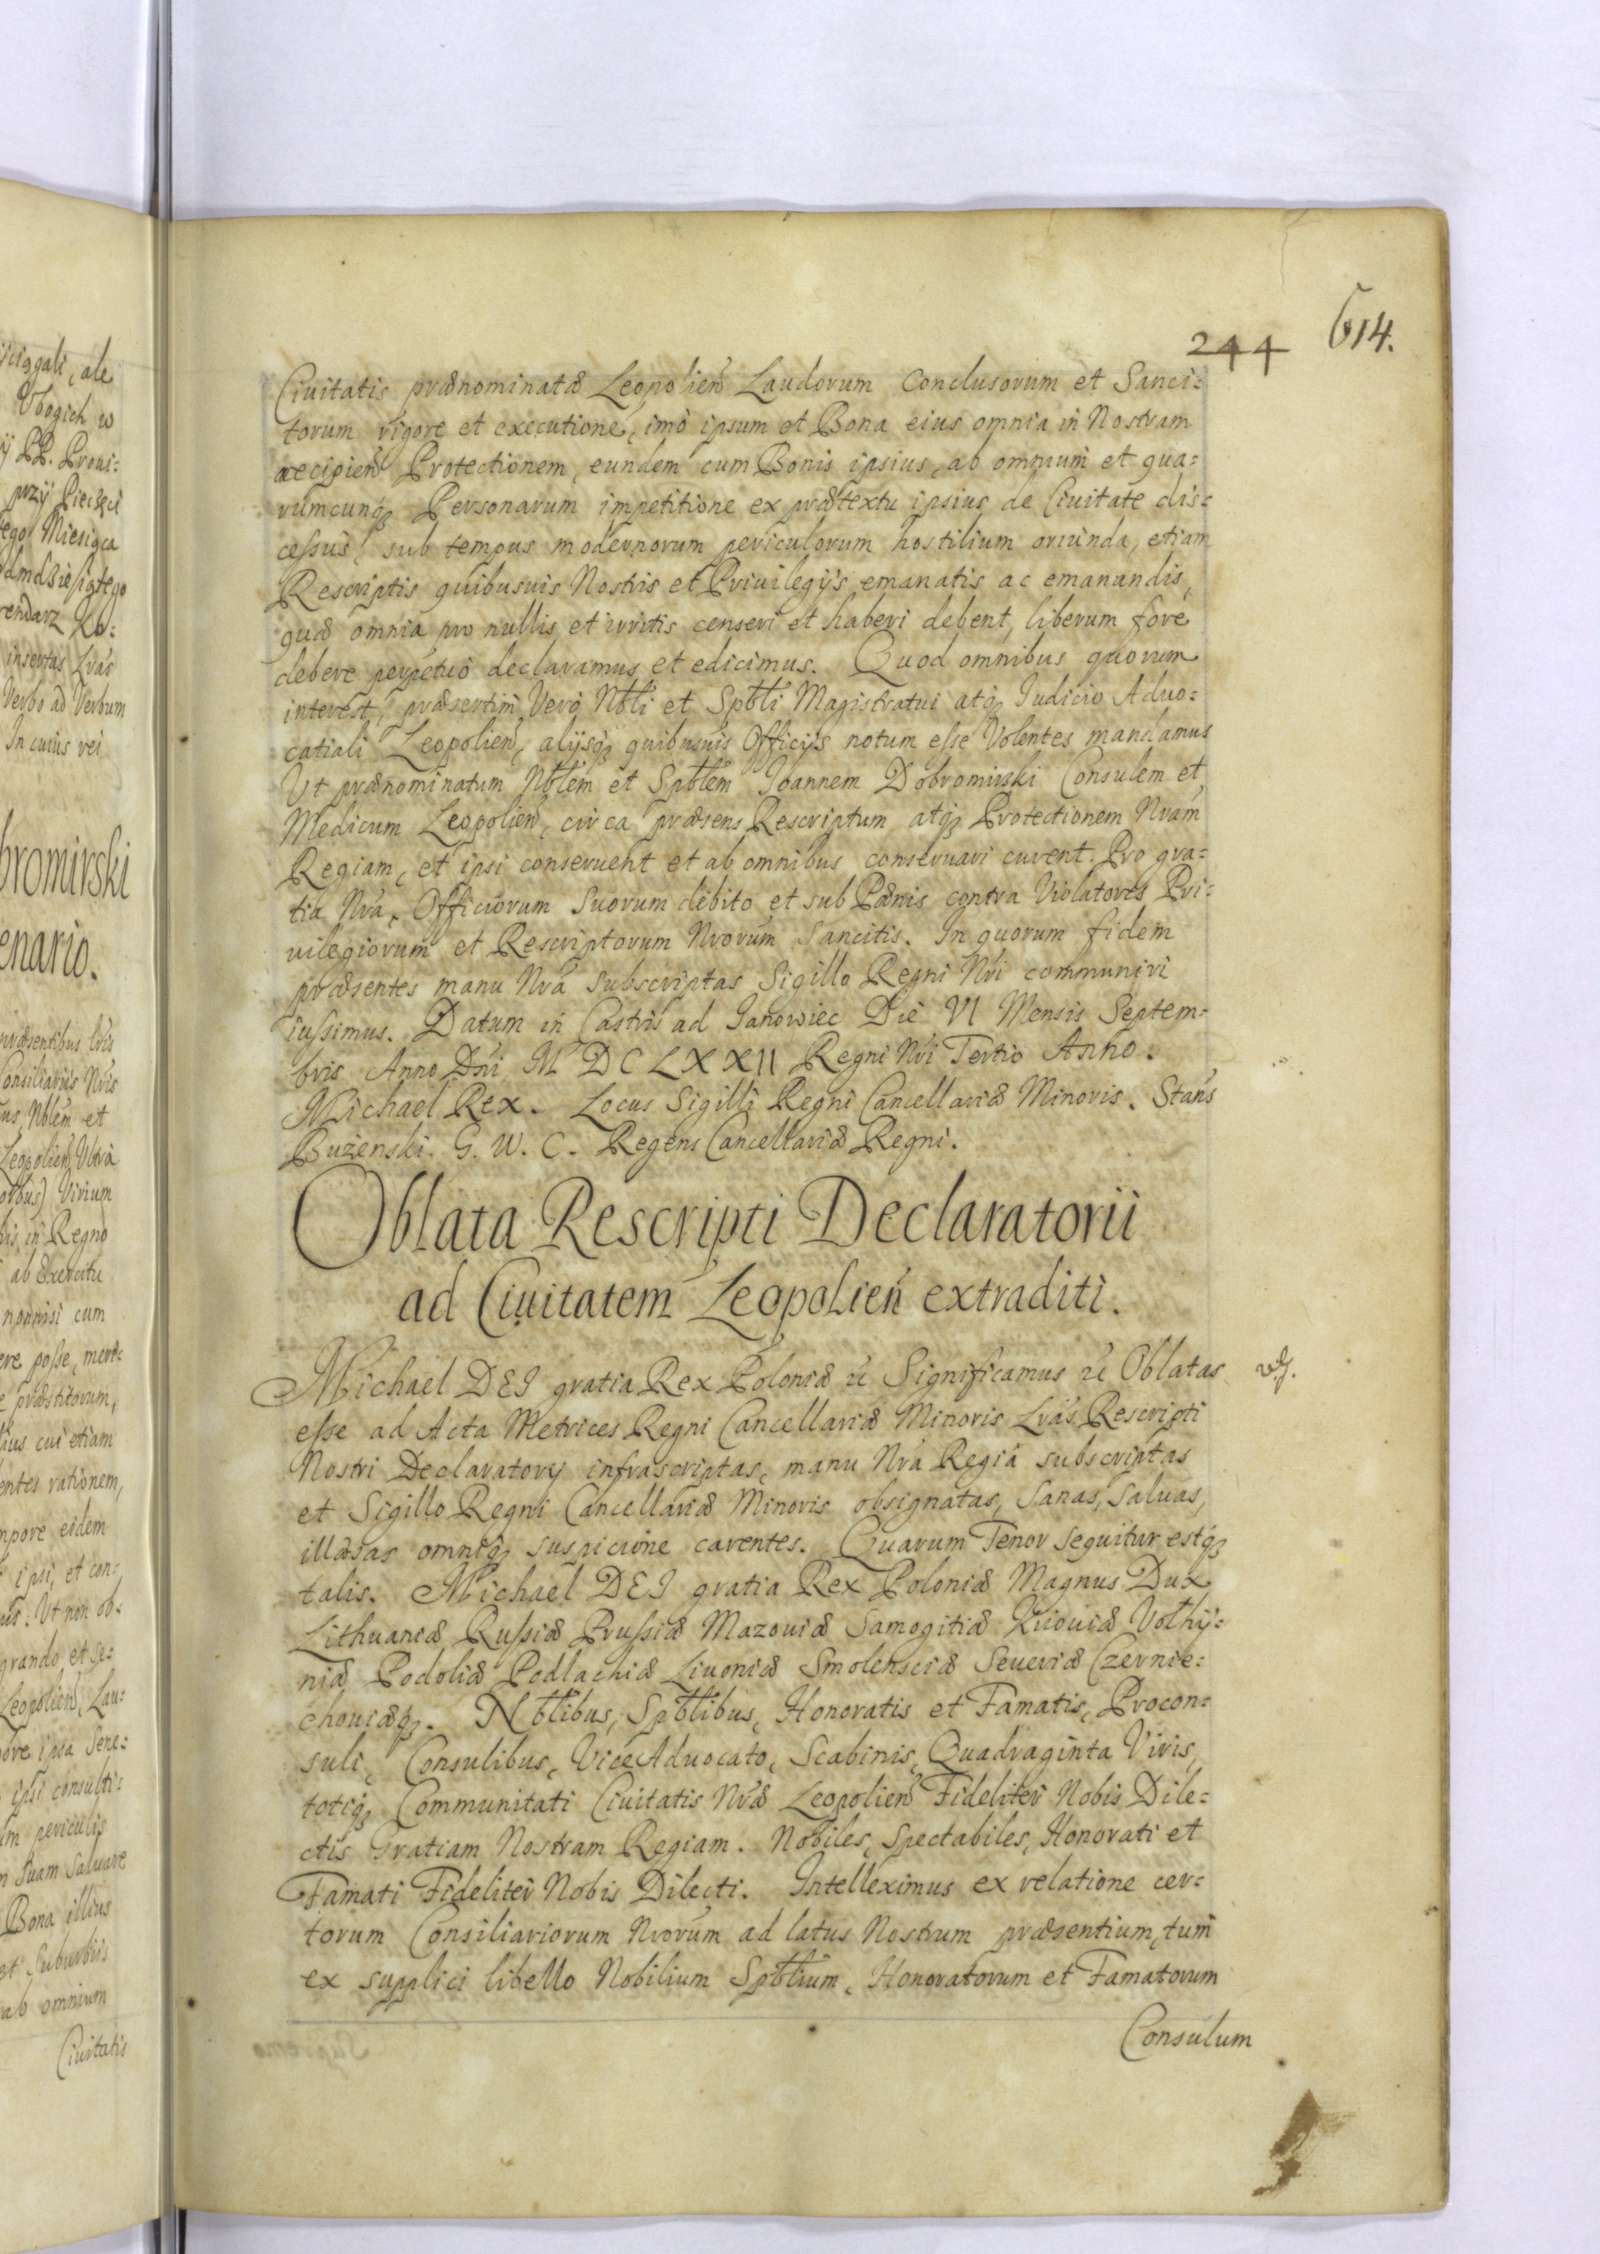 244 614.
Ciuitatis prænominatæ Leopolien̄ Laudorum Conclusorum et Sanci:
torum rigore et executione, imò ipsum et Bona eius omnia in Nostram
recipien̄ Protectionem, eundem cum Bonis ipsius, ab omnium et qua:
rumcunq₃ Personarum impetitione ex prætextu ipsius de Ciuitate dis:
cessus, sub tempus modernorum periculorum hostilium oriunda, etiam
Rescriptis quibusuis Nostris et Priuilegijs emanatis ac emanandis,
quæ omnia pro nullis et irritis censeri et haberi debent, liberum fore
debere perpetuò declaramus et edicimus. Quod omnibus quorum
interest, præsertim Verò Nbli et Spbli Magistratui atq₃ Iudicio Aduo:
catiali Leopolien̄, alijsq₃ quibusuis Officijs notum esse Volentes mandamus
Vt prænominatum Nblem et Spblem Ioannem Dobromirski Consulem et
Medicum Leopolien̄, circa præsens Rescriptum atq₃ Protectionem Nram
Regiam, et ipsi conseruent et ab omnibus conseruari curent. Pro gra:
tia Nra, Officiorum Suorum debito et sub Pænis contra Violatores Pri:
uilegiorum et Rescriptorum Nrorum Sancitis. In quorum fidem
præsentes manu Nra subscriptas Sigillo Regni Nri communiri
iussimus. Datum in Castris ad Janowiec Die VI Mensis Septem:
bris Anno Dni M DC LXXII Regni Nri Tertio Anno.
Michael Rex. Locus Sigilli Regni Cancellariæ Minoris. Stans
Bużenski. G. W. C. Regens Cancellariæ Regni.
Oblata Rescripti Declaratorii
ad Ciuitatem Leopolien̄ extraditi.
Michael DEI gratia Rex Poloniæ Significamus Oblatas
esse ad Acta Metrices Regni Cancellariæ Minoris Lras Rescripti
Nostri Declaratory infrascriptas, manu Nra Regiâ subscriptas
et Sigillo Regni Cancellariæ Minoris obsignatas, Sanas, Saluas,
illæsas omniq₃ suspicione carentes. Quarum Tenor sequitur estq₃
talis. Michael DEI gratia Rex Poloniæ Magnus Dux
Lithuaniæ Russiæ Prussiæ Mazouiæ Samogitiæ Kiouiæ Volhÿ:
niæ Podoliæ Podlachiæ Liuoniæ Smolensciæ Seueriæ Czernie:
chouiæq₃. Nblibus, Spblibus, Honoratis et Famatis, Procon:
suli, Consulibus, Vice Aduocato, Scabinis, Quadraginta Viris,
totiq₃ Communitati Ciuitatis Nræ Leopolien̄ Fideliter Nobis Dile:
ctis Gratiam Nostram Regiam. Nobiles, Spectabiles, Honorati et
Famati Fideliter Nobis Dilecti. Intelleximus ex relatione cer:
torum Consiliariorum Nrorum ad latus Nostrum præsentium, tum
ex supplici libello Nobilium Spblium, Honoratorum et Famatorum
Consulum